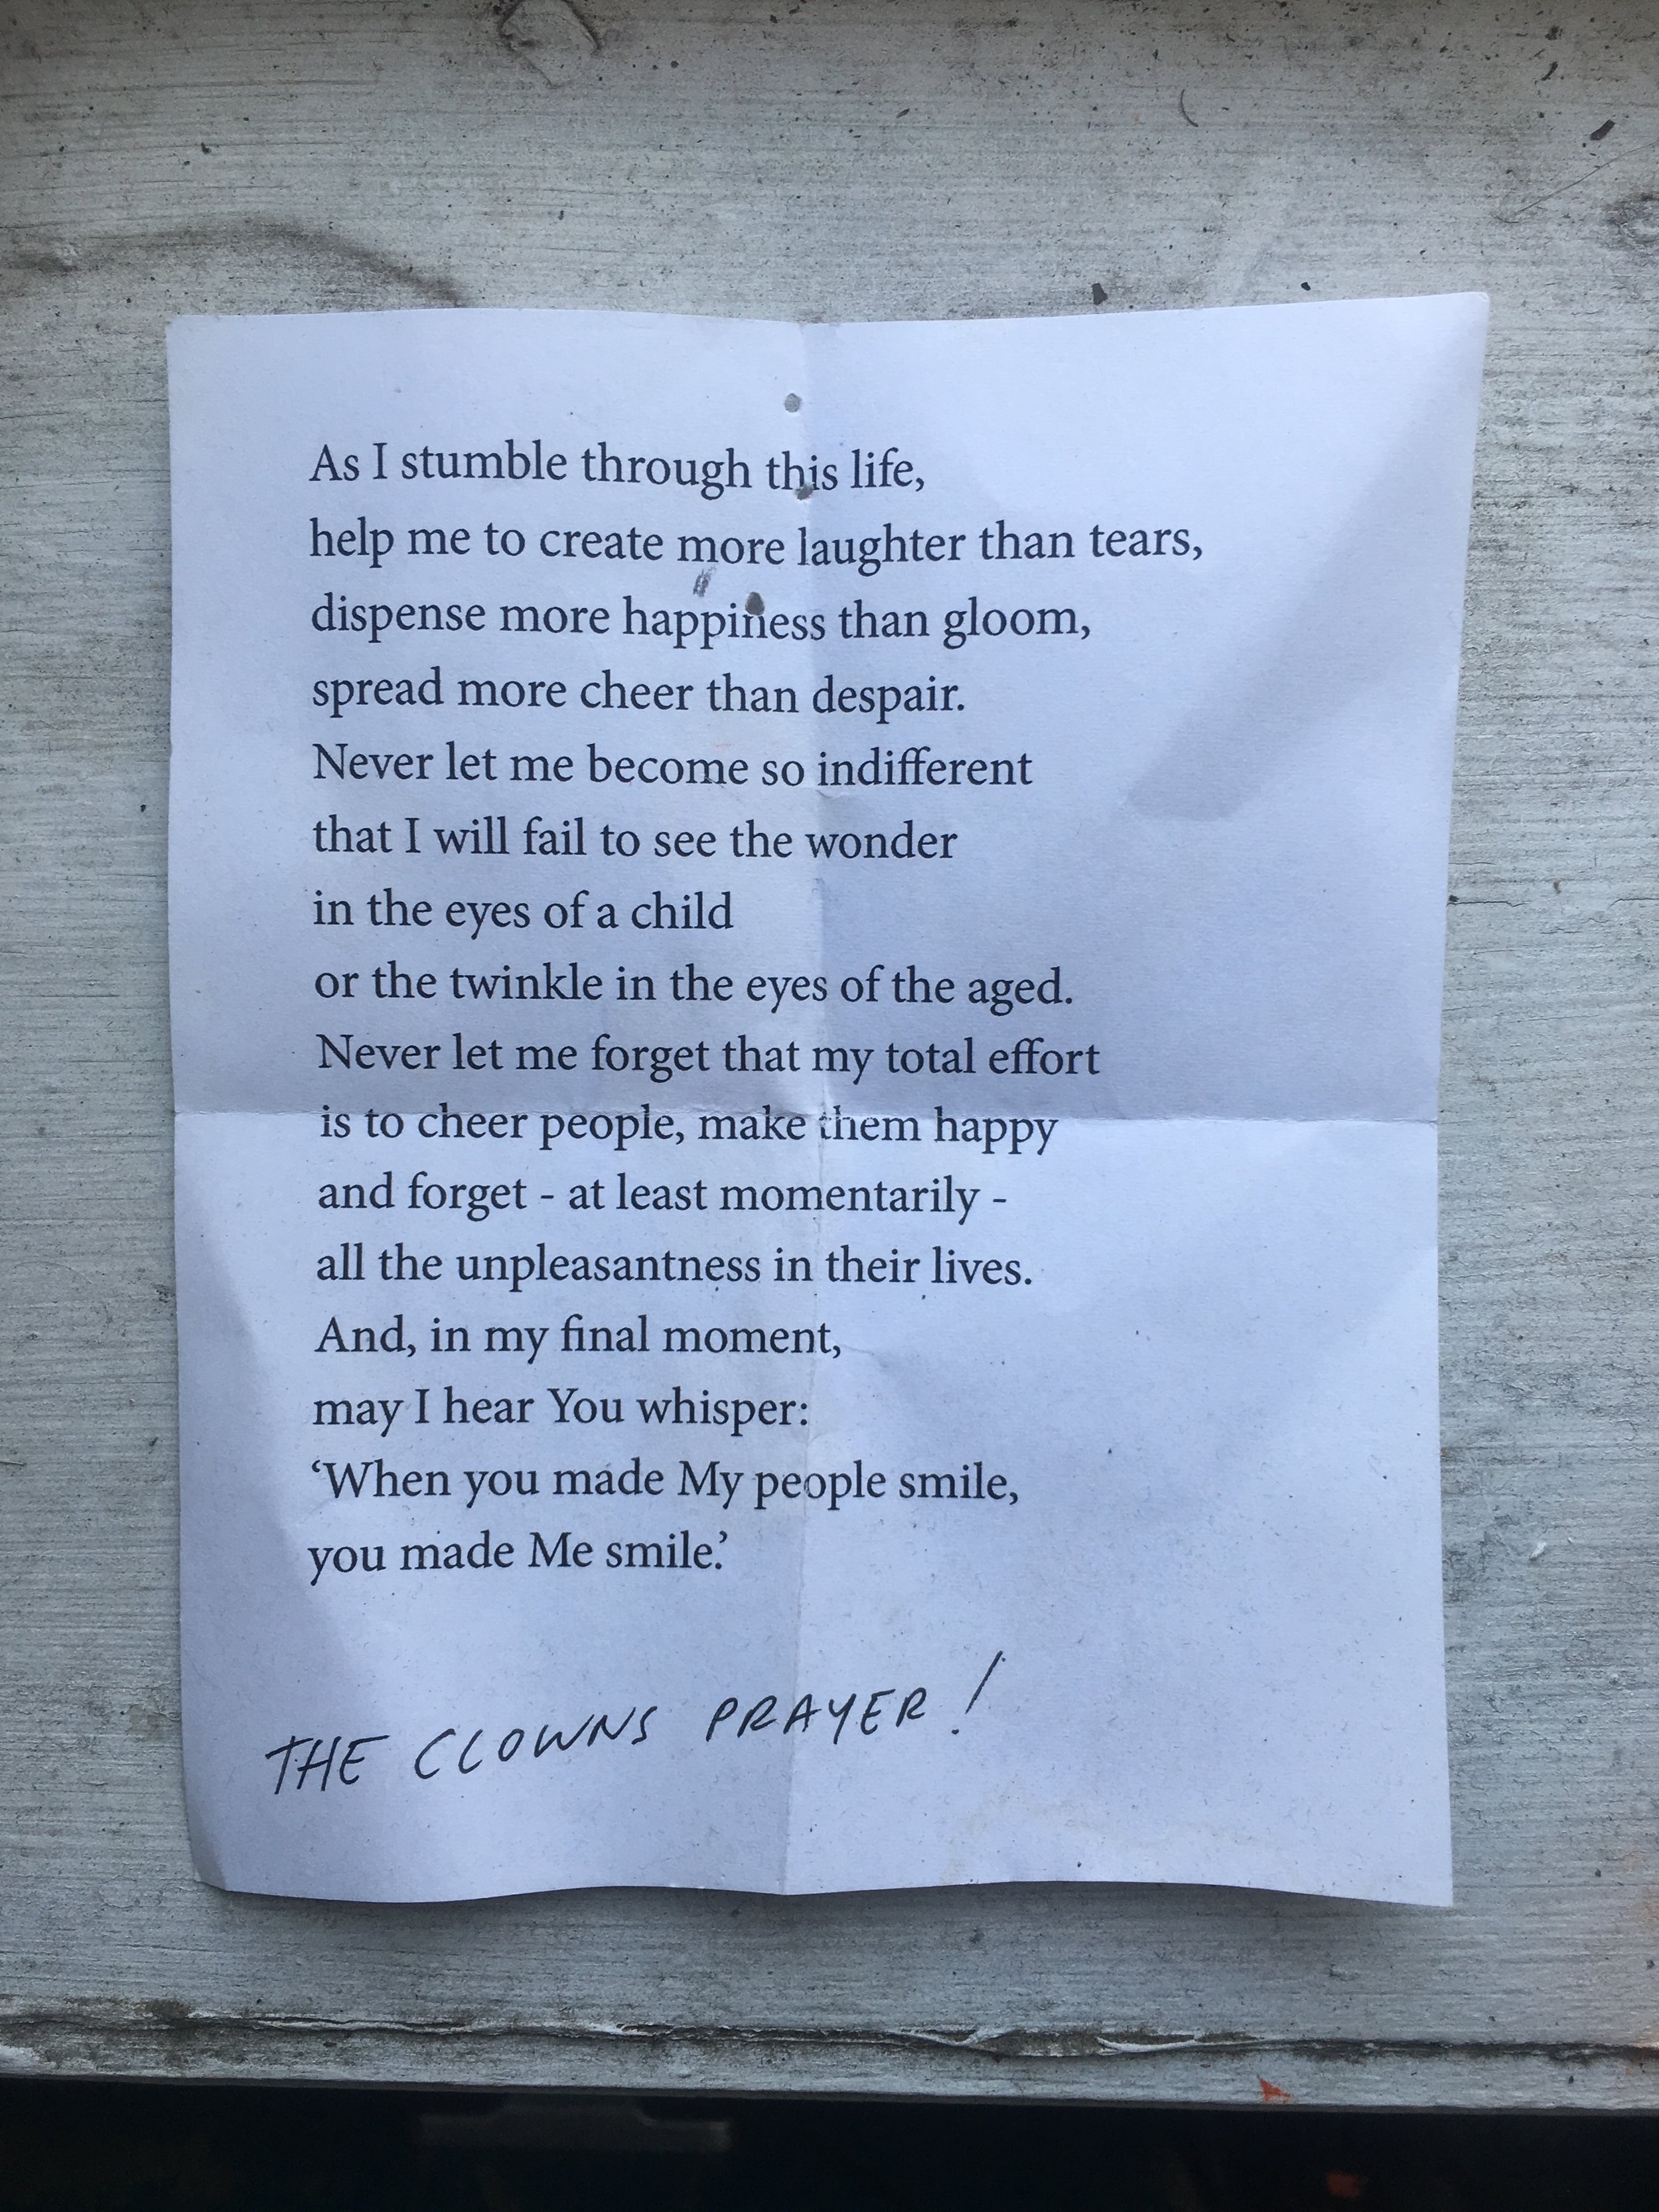 As I stumble through this life,
help me to create more laughter than tears,
dispense more happiness than gloom,
spread more cheer than despair.
Never let me become so indifferent
that I will fail to see the wonder
in the eyes of a child
or the twinkle in the eyes of the aged.
Never let me forget that my total effort
is to cheer people, make them happy
and forget - at least momentarily -
all the unpleasantness in their lives.
And, in my final moment,
may I hear You whisper:
‘When you made My people smile,
you made Me smile.’
THE CLOWNS PRAYER!